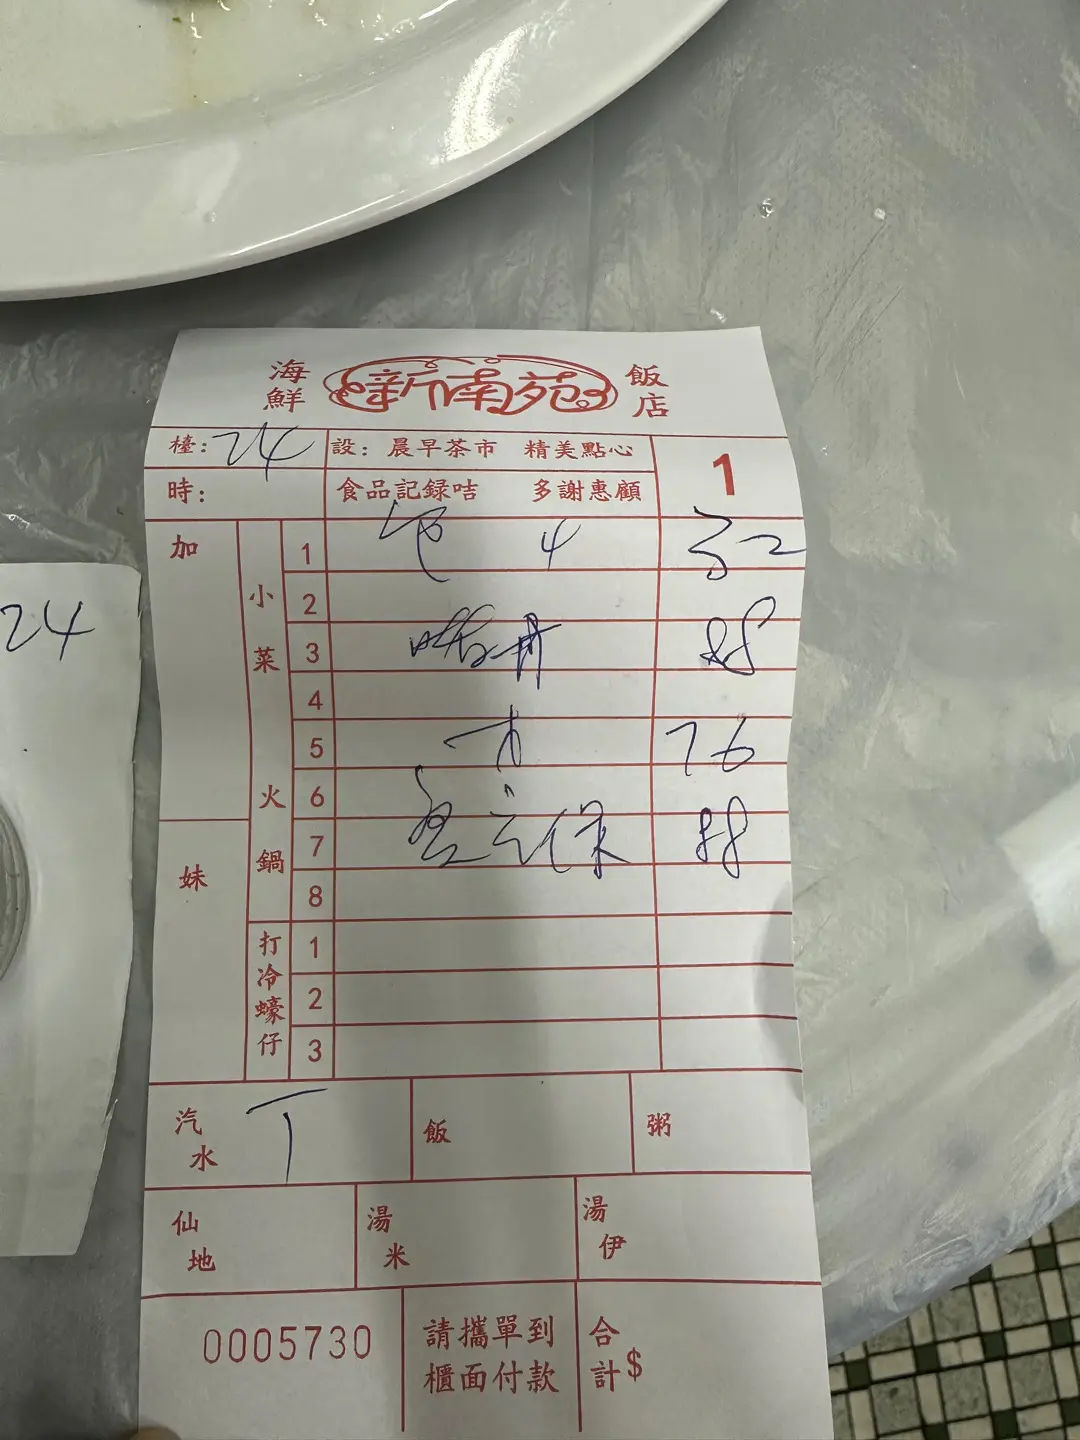 海鮮 新南苑 飯店
檯: 24 設: 晨早茶市 精美點心
1
時: 食品記録咭 多謝惠顧
加
小菜
火鍋
1 4 32
2
3 88
4
5 76
6
7 88
8
妹
打冷蠔仔
1
2
3
汽水 飯 粥
仙地 湯米 湯伊
0005730 請攜單到櫃面付款 合計$
24